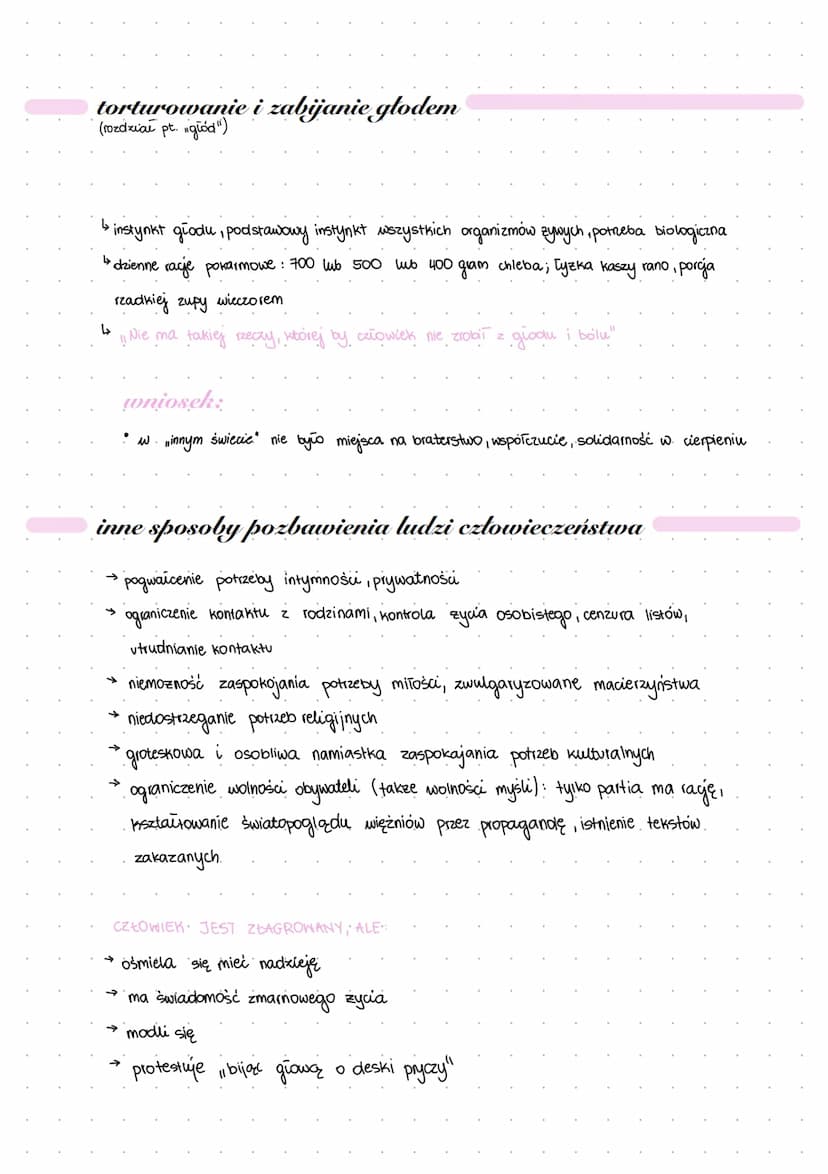 torturowanie i zabijanie głodem
(rozdział pt. „głód")
↳ instynkt głodu, podstawowy instynkt wszystkich organizmów żywych, potrzeba biologiczna
↳ dzienne racje pokarmowe: 700 lub 500 lub 400 gram chleba; łyżka kaszy rano, porcja
rzadkiej zupy wieczorem
↳ „Nie ma takiej rzeczy, której by człowiek nie zrobił z głodu i bólu"
wniosek:
• w „innym świecie" nie było miejsca na braterstwo, współczucie, solidarność w cierpieniu
inne sposoby pozbawienia ludzi człowieczeństwa
→ pogwałcenie potrzeby intymności, prywatności
→ ograniczenie kontaktu z rodzinami, kontrola życia osobistego, cenzura listów,
utrudnianie kontaktu
→ niemożność zaspokojania potrzeby miłości, zwulgaryzowane macierzyństwa
→ niedostrzeganie potrzeb religijnych
→ groteskowa i osobliwa namiastka zaspokajania potrzeb kulturalnych
→ ograniczenie wolności obywateli (także wolności myśli): tylko partia ma rację,
kształtowanie światopoglądu więźniów przez propagandę, istnienie tekstów
zakazanych
CZŁOWIEK JEST ZŁAGROWANY, ALE:
→ ośmiela się mieć nadzieję
→ ma świadomość zmarnowego życia
→ modli się
→ protestuje „bijąc głową o deski pryczy"